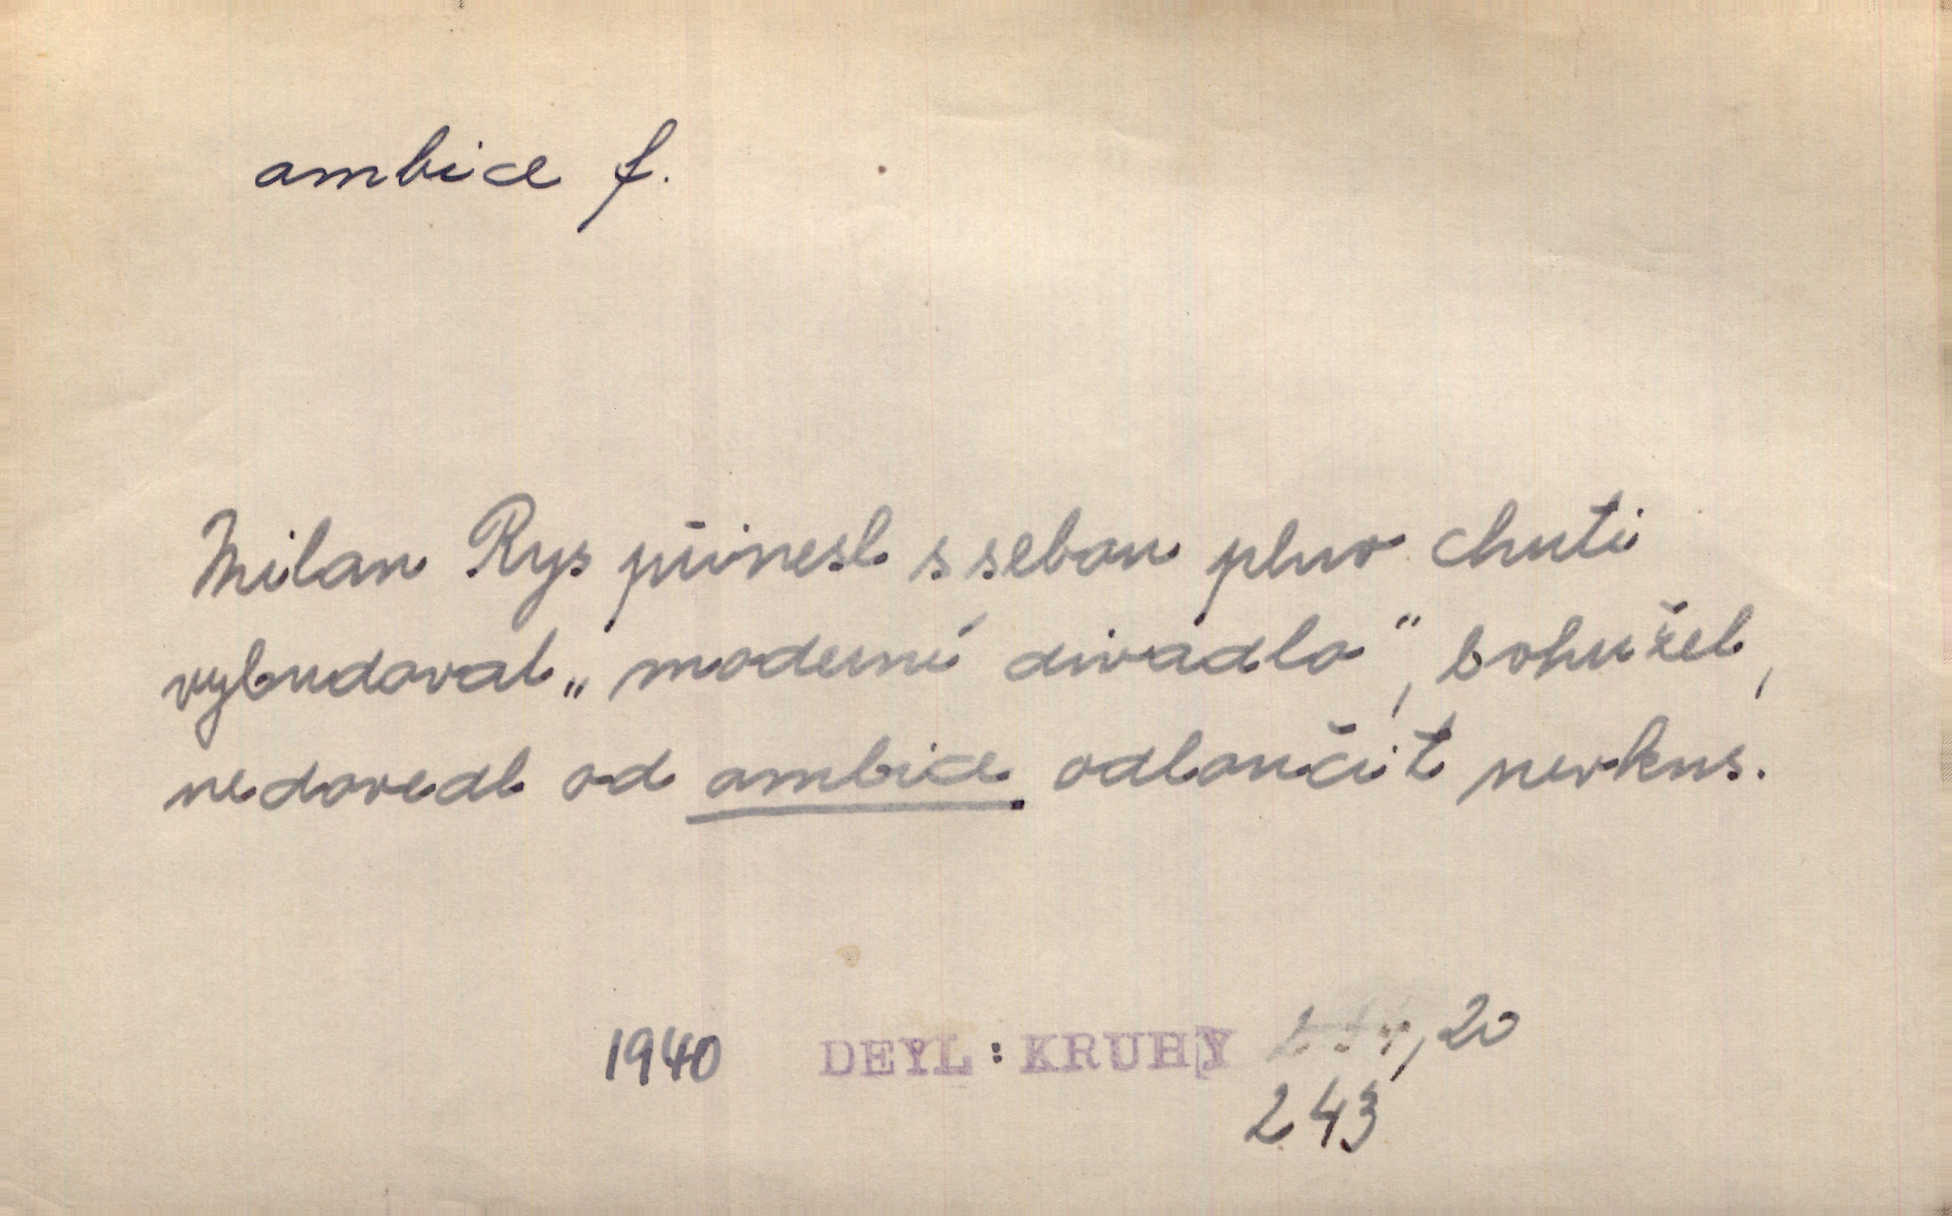 ambice f.
Milan Rys přinesl s sebou plno chuti
vybudovat „moderní divadlo", bohužel,
nedovedl od ambice odloučit nevkus.
1940 DEYL: KRUHY ,20
243